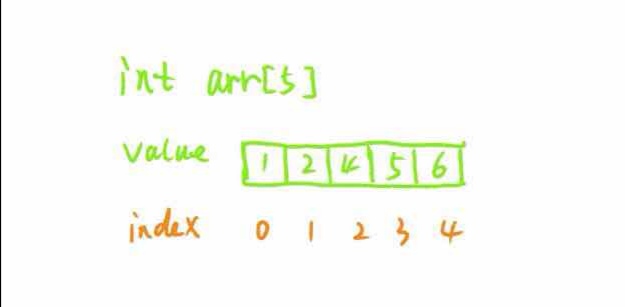 int arr[5]
value 1 2 4 5 6
index 0 1 2 3 4